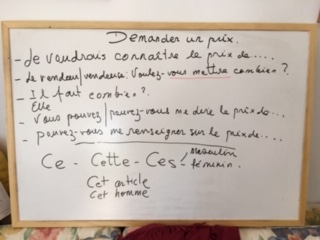 Demander un prix.
- Je voudrais connaître le prix de....
- Le vendeur/vendeuse: Voulez-vous mettre combien?
- Il faut combien?
Elle
- Vous pouvez/pouvez-vous me dire le prix de...
- pouvez-vous me renseigner sur le prix de....
Ce - Cette - Ces masculin
féminin.
Cet article
Cet homme